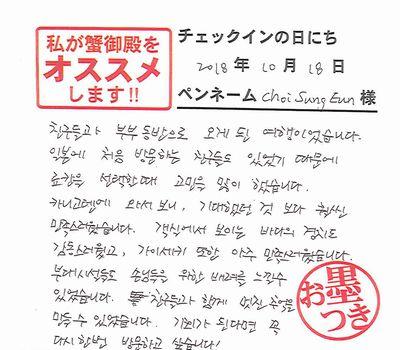 私が蟹御殿を
オススメ
します!!
チェックインの日にち
2018年 10月 18日
ペンネーム Choi Sung Eun 様
친구들과 부부동반으로 오게 된 여행이었습니다.
일본에 처음 방문하는 친구들도 있었기 때문에
료칸을 선택할때 고민을 많이 했습니다.
카니고텐에 와서 보니, 기대했던 것 보다 훨씬
만족스러웠습니다. 객실에서 보이는 바다의 경치도
감동스러웠고, 가이세키 또한 아주 만족스러웠습니다.
부대시설들도 손님들을 위한 배려를 느낄수
있었습니다. 친구들과 함께 멋진 추억을
만들수 있었습니다. 기회가 된다면 꼭
다시한번 방문하고 싶습니다!
お墨つき